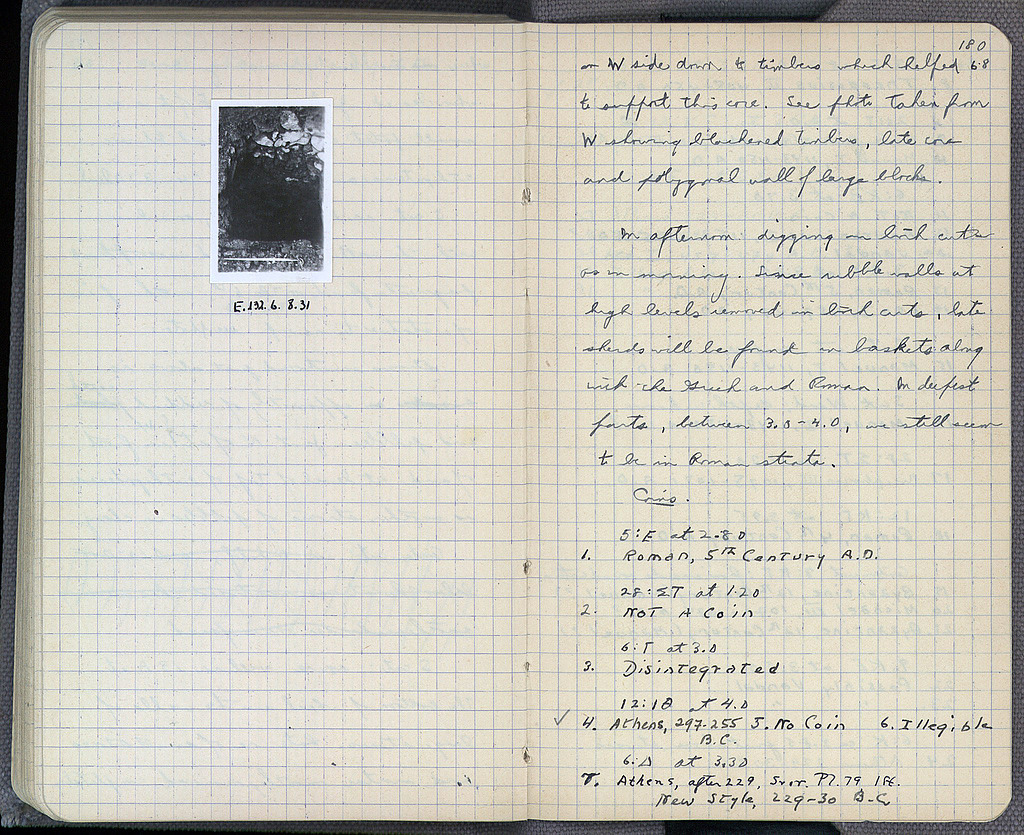 E.132. 6. 8. 31
180
on W side down to timbers which helped 6·8
to support this core. See photo taken from
W showing blackened timbers, late core
and polygonal wall of large blocks.
In afternoon: digging in both cuts
as in morning. Since rubble walls at
high levels removed in both cuts, late
sherds will be found in baskets along
with the Greek and Roman. In deepest
parts, between 3.0-4.0, we still seem
to be in Roman strata.
Coins.
5:E at 2.80
1. Roman, 5th Century A.D.
28:ΣT at 1.20
2. NOT A Coin
6:Γ at 3.0
3. Disintegrated
12:ΙΘ at 4.0
✓ 4. Athens, 297-255 5. No Coin 6. Illegible
B.C.
6:Δ at 3.30
7. Athens, after 229, Svor. Pl. 79
New Style, 229-30 B.C.